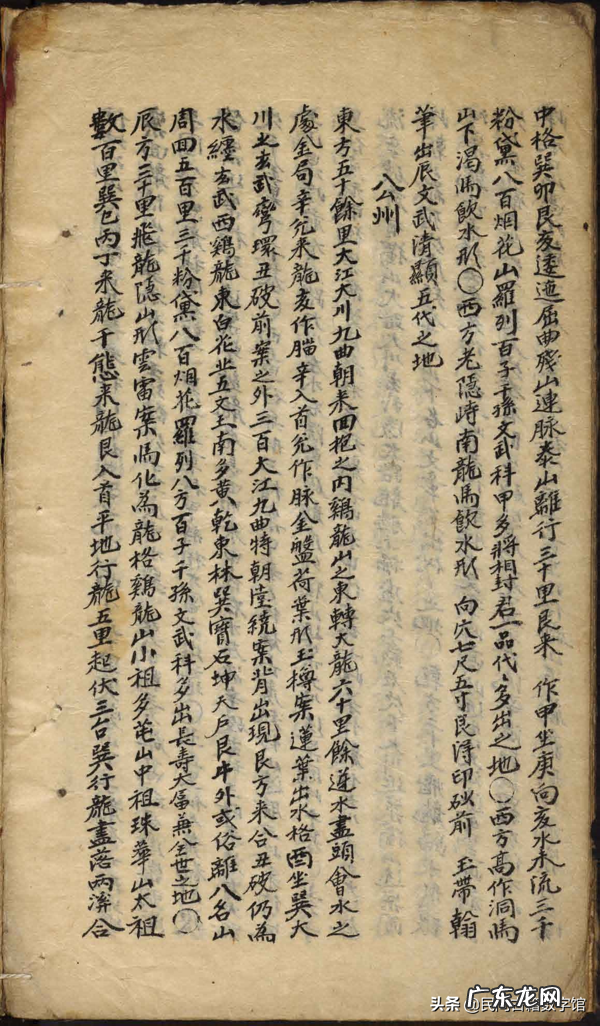 中格巽卯艮亥逶迤屈曲殘山連脉泰山離行三十里艮来 作甲坐庚向亥水未流三千
粉黛八百烟花山羅列百子千孫文武科甲多將相封君一品代〻多出之地〇西方高作洞馬
山下渴馬飲水形〇西方老隱峙南龍馬飲水形 向穴七尺五寸艮得印砂前 玉帶翰
筆出辰文武清顯五代之地
八公州
東方五十餘里大江大川九曲朝来回抱之内鷄龍山之東轉大龍六十里餘逆水盡頭會水之
處金局辛兌来龍亥作腦辛入首兌作脉金盤荷葉形玉樽案蓮葉出水格酉坐巽大
川之玄武弯環丑破前案之外三百大江九曲特朝陸繞案背出現艮方来合丑破仍為
水纏玄武西鷄龍東白花北五文王南多黄乾東林巽寶石坤天戶艮牛外或俗離八名山
周回五百里三千粉黛八百烟花羅列八方百子千孫文武科多出長壽大富兼全世之地〇
辰方三十里飛龍隱山形雲雷案馬化為龍格鷄龍山小祖多芚山中祖珠華山太祖
數百里巽巳丙丁来龍千態来龍艮入首平地行龍五里起伏三台巽行龍盡落兩渀合
头条 @民间古籍数字馆
广东龙网